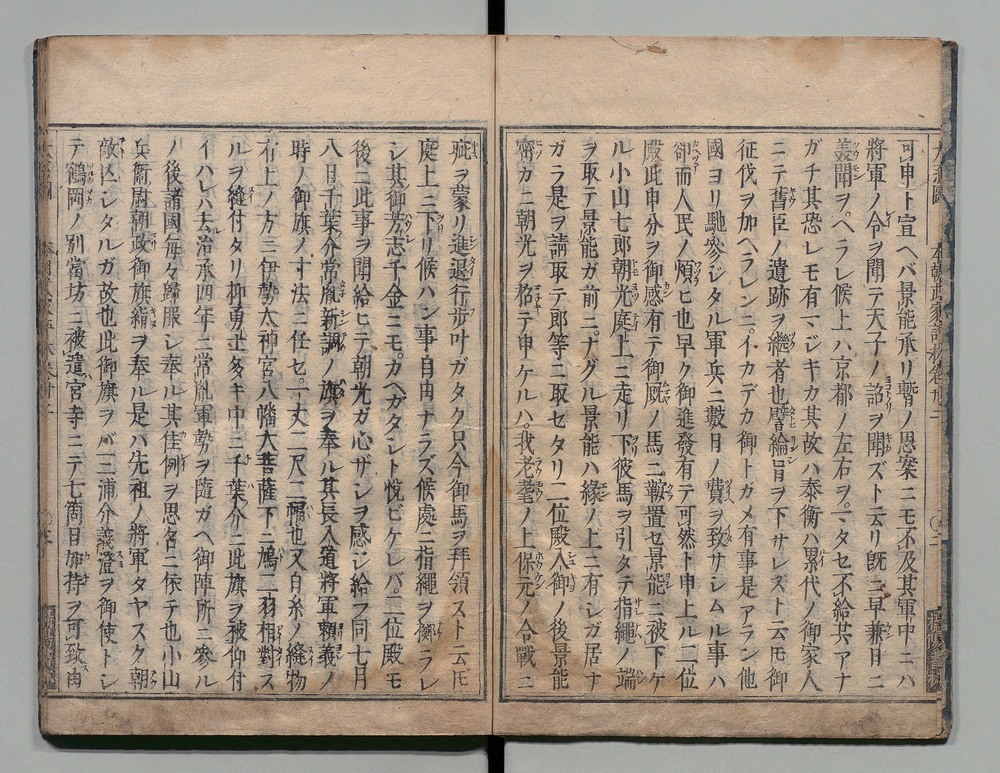 可申ト宣ヘバ景能承リ暫ノ思案ニモ不及其軍中ニハ
將軍ノ令ヲ聞テ天子ノ詔ヲ聞ズト云リ既ニ早兼日ニ
義聞ヲヘラレ候上ハ京都ノ左右ヲマタセ不給共アナ
ガチ其恐レモ有マジキカ其故ハ泰衡ハ累代ノ御家人
ニテ舊臣ノ遺跡ヲ繼者也譬綸旨ヲ下サレズト云𪜈御
征伐ヲ加ヘラレンニイカデカ御トガメ有事是アラン他
國ヨリ馳參ジタル軍兵ニ數月ノ費ヲ致サシムル事ハ
卻而人民ノ煩ヒ也早ク御進發有テ可然ト申上ル二位
殿此申分ヲ御感有テ御厩ノ馬ニ鞍置セ景能ニ被下ケ
ル小山七郎朝光庭上ニ走リ下彼馬ヲ引タテ指繩ノ端
ヲ取テ景能ガ前ニナグル景能ハ緣ノ上ニ有シガ居ナ
ガラ是ヲ請取テ郎等ニ取セタリ二位殿入御ノ後景能
密カニ朝光ヲ招テ申ケルハ我老耄ノ上保元ノ合戰ニ
疵ヲ蒙リ進退行步叶ガタク只今御馬ヲ拜領スト云𪜈
庭上ニ下リ候ハン事自由ナラズ候處ニ指繩ヲ擲ラレ
シ其御芳志千金ニモカヘガタシト悅ビケレバ二位殿モ
後ニ此事ヲ聞給ヒテ朝光ガ心ザシヲ感ジ給フ同七月
八日千葉介常胤新調ノ旗ヲ奉ル其長入道將軍賴義ノ
時ノ御旗ノ寸法ニ任セ一丈二尺二幅也又白糸ノ縫物
有上ノ方ニ伊勢大神宮八幡大菩薩下ニ鳩二羽相對ス
ルヲ縫付タリ抑勇士多キ中ニ千葉介ニ此旗ヲ被仰付
イハレハ去治承四年ニ常胤軍勢ヲ隨ガヘ御陣所ニ參ル
ノ後諸國每々歸服シ奉ル其佳例ヲ思召ニ依テ也小山
兵衞尉朝政御旗絹ヲ奉ル是ハ先祖ノ將軍タヤスク朝
敵亡シタルガ故也此御旗ヲバ三浦介義澄ヲ御使トシ
テ鶴岡ノ別當坊ニ被遣宮寺ニテ七箇日加持ヲ可致由